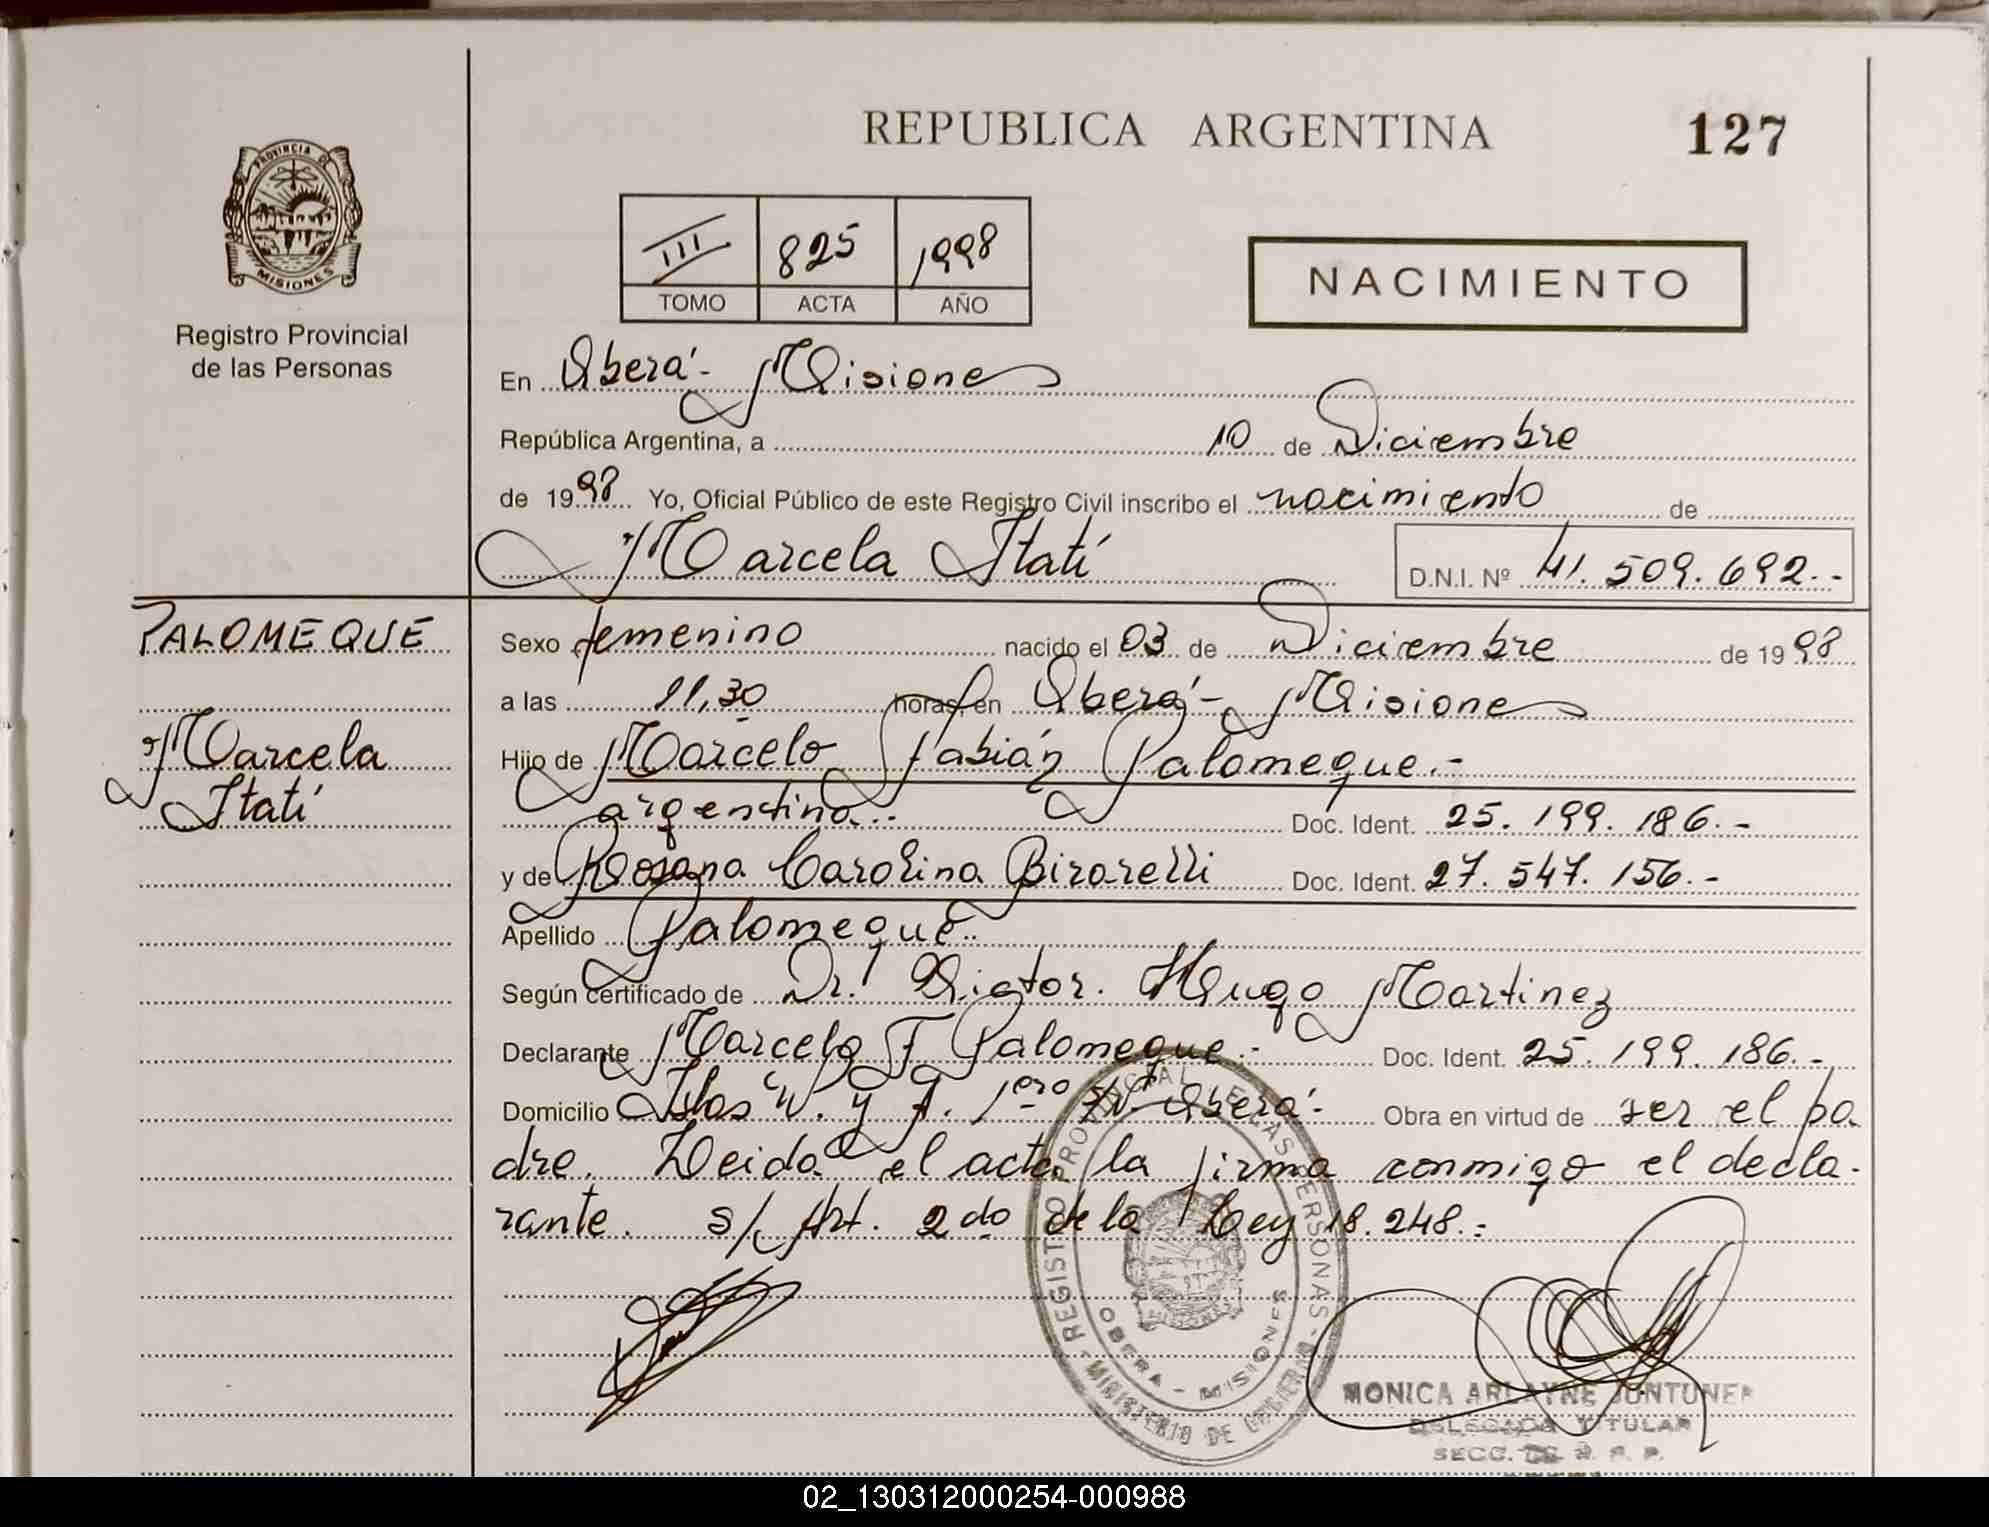 REPUBLICA ARGENTINA
127
PROVINCIA DE
MISIONES
Registro Provincial
de las Personas
III 825 1998
TOMO ACTA AÑO
NACIMIENTO
En Oberá- Misiones
República Argentina, a 10 de Diciembre
de 1998 Yo, Oficial Público de este Registro Civil inscribo el nacimiento de
Marcela Itatí
D.N.I. Nº 41.509.692.-
PALOMEQUE
Marcela
Itatí
Sexo femenino nacido el 03 de Diciembre de 1998
a las 11,30 horas, en Oberá- Misiones
Hijo de Marcelo Fabián Palomeque.-
argentino.- Doc. Ident. 25.199.186.-
y de Rosana Carolina Birarelli Doc. Ident. 27.547.156.-
Apellido Palomeque.
Según certificado de Dr. Victor Hugo Martinez
Declarante Marcelo F Palomeque.- Doc. Ident. 25.199.186.-
Domicilio Islas y 1ero Oberá- Obra en virtud de ser el pa
dre. Leida el acta la firma conmigo el decla-
rante. s/ Art. 2do de la Ley 18.248.-
REGISTRO PROVINCIAL DE LAS PERSONAS
OBERA - MISIONES
MINISTERIO DE GOBIERNO
MONICA ARLAYNE JUNTUNEN
DELEGADA TITULAR
SECC. R. P.
02_130312000254-000988